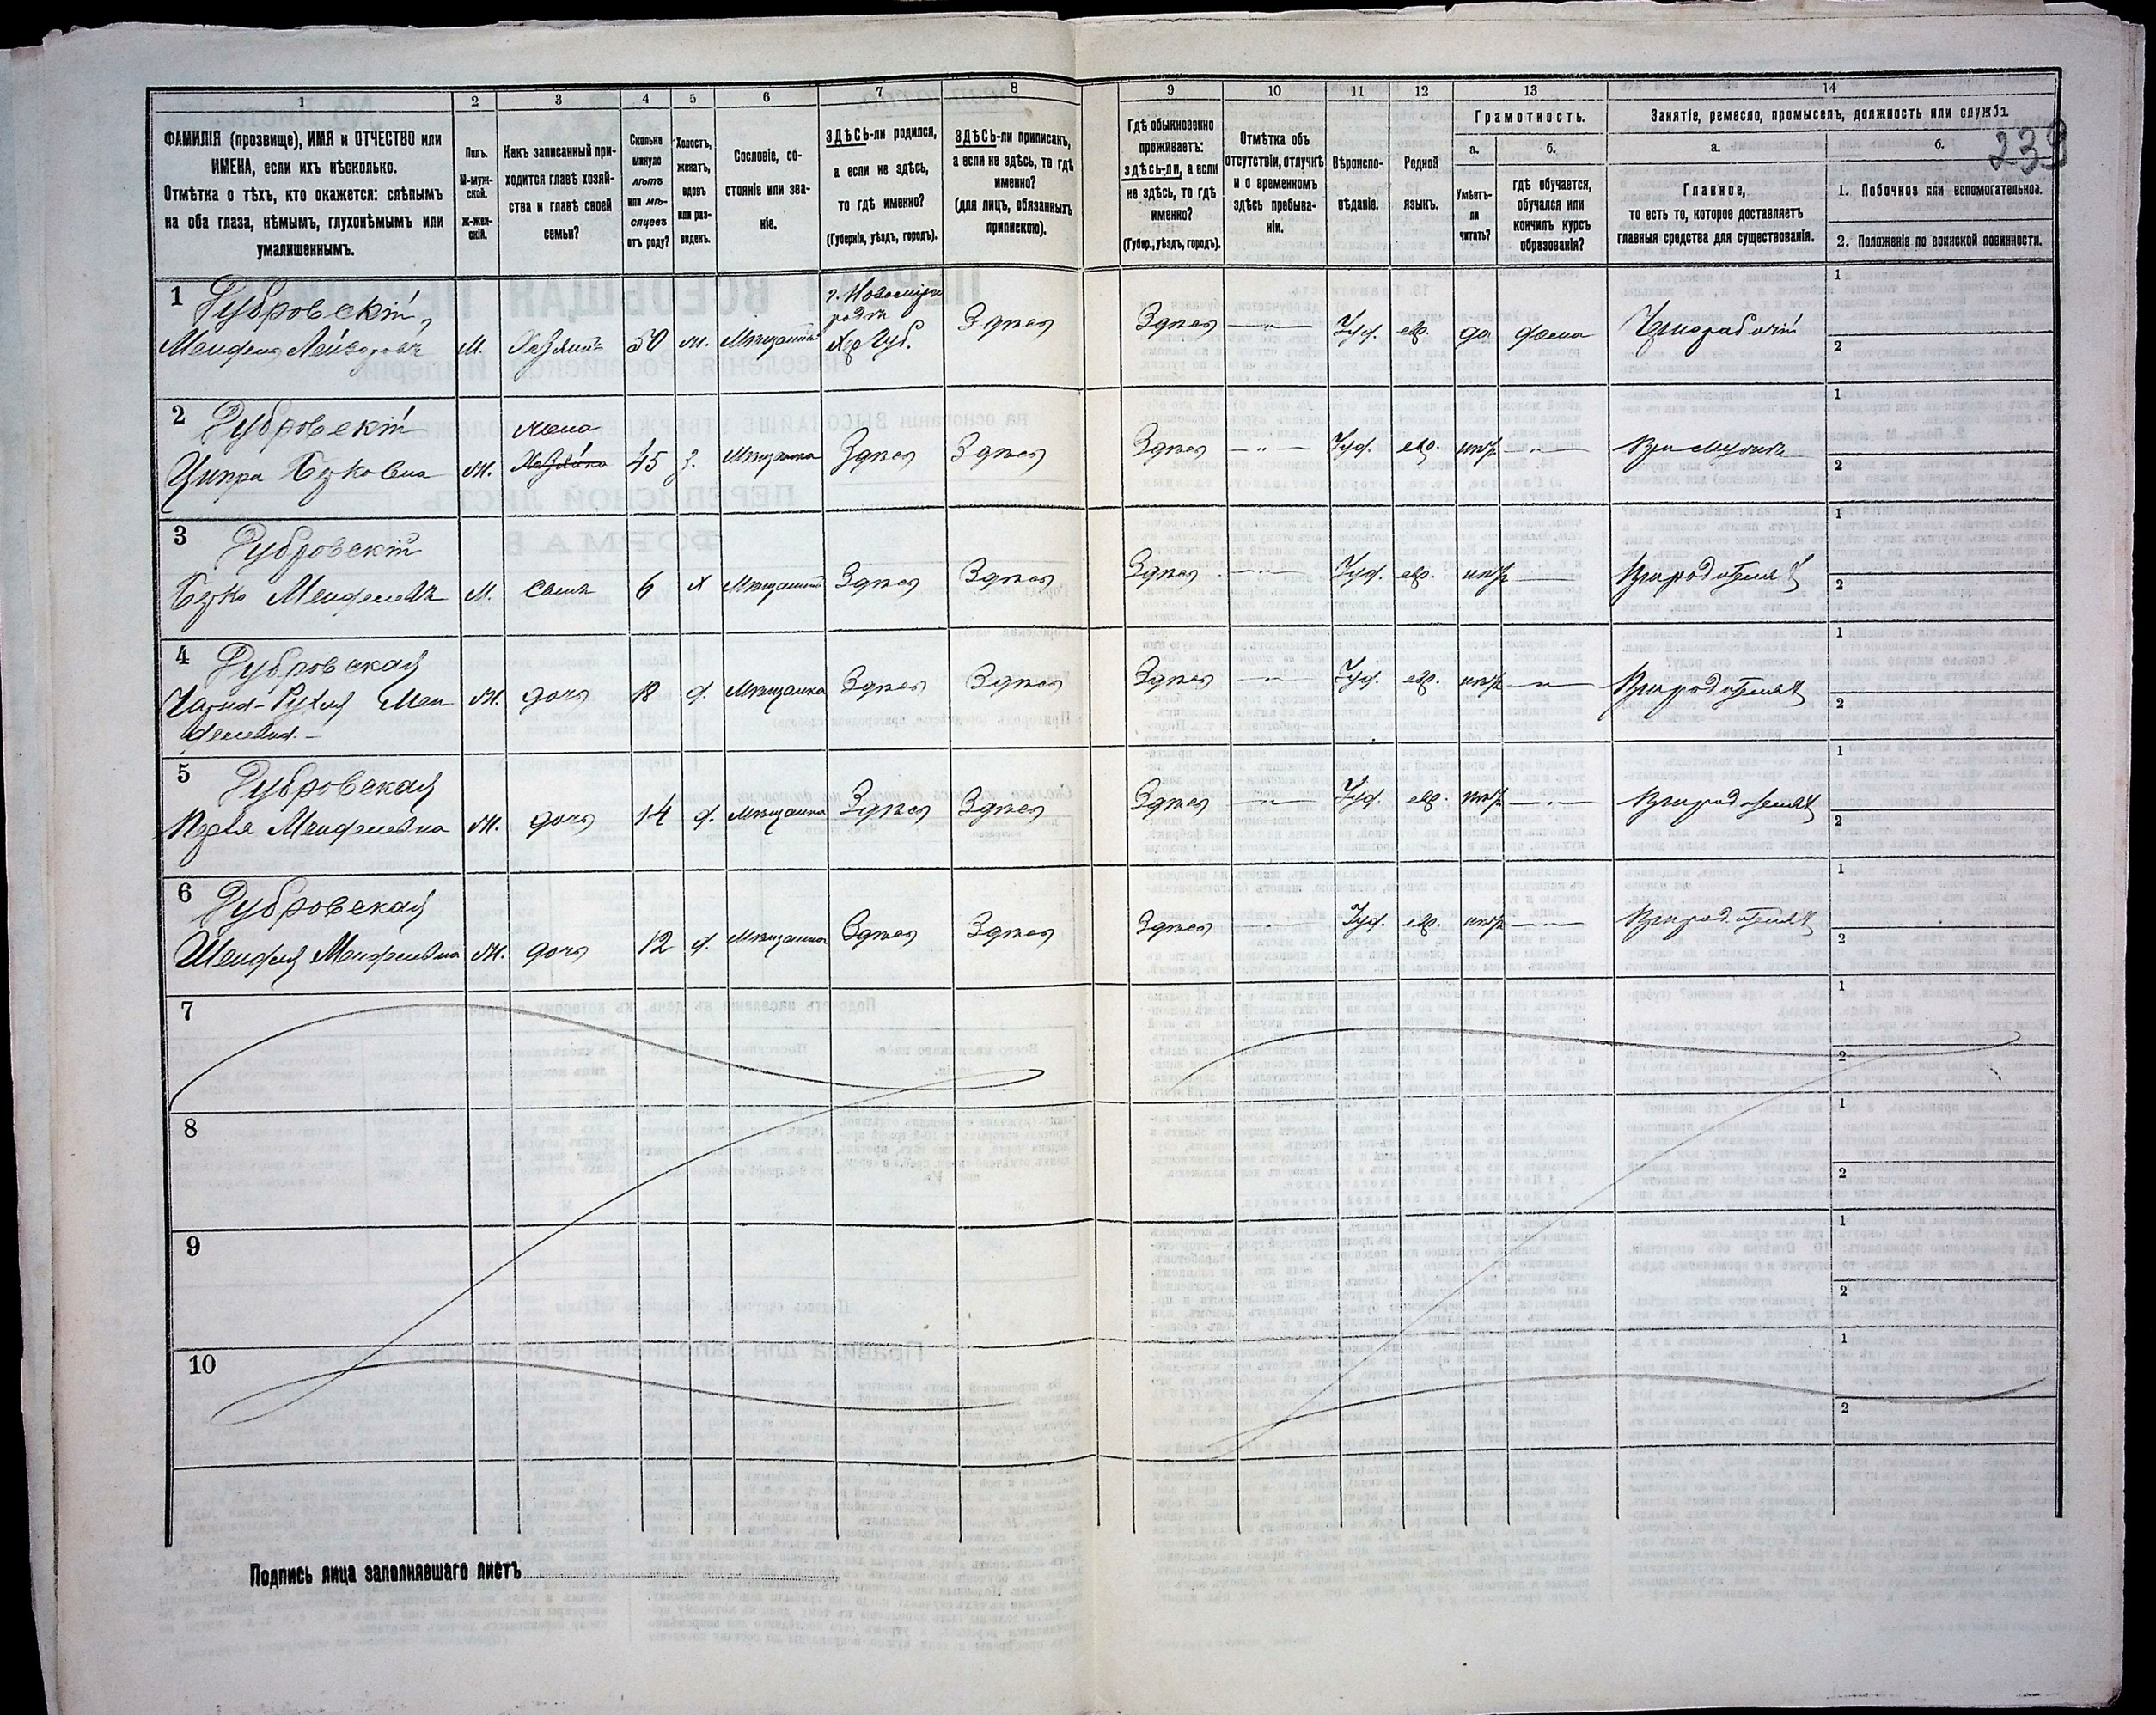 239
1 2 3 4 5 6 7 8 9 10 11 12 13 14
ФАМИЛІЯ (прозвище), ИМЯ и ОТЧЕСТВО или
ИМЕНА, если ихъ нѣсколько.
Отмѣтка о тѣхъ, кто окажется: слѣпымъ
на оба глаза, нѣмымъ, глухонѣмымъ или
умалишеннымъ.
Полъ.
М-муж-
ской.
Ж-жен-
скій.
Какъ записанный при-
ходится главѣ хозяй-
ства и главѣ своей
семьи?
Сколько
минуло
лѣтъ
или мѣ-
сяцевъ
отъ роду?
Холостъ,
женатъ,
вдовъ
или раз-
веденъ.
Сословіе, со-
стояніе или зва-
ніе.
ЗДѢСЬ-ли родился,
а если не здѣсь,
то гдѣ именно?
(Губернія, уѣздъ, городъ).
ЗДѢСЬ-ли приписанъ,
а если не здѣсь, то гдѣ
именно?
(для лицъ, обязанныхъ
припискою).
Гдѣ обыкновенно
проживаетъ:
здѣсь-ли, а если
не здѣсь, то гдѣ
именно?
(Губер., уѣздъ, городъ).
Отмѣтка объ
отсутствіи, отлучкѣ
и о временномъ
здѣсь пребыва-
ніи.
Вѣроиспо-
вѣданіе.
Родной
языкъ.
Грамотность.
а.
Умѣетъ-
ли
читать?
б.
гдѣ обучается,
обучался или
кончилъ курсъ
образованія?
Занятіе, ремесло, промыселъ, должность или служба.
а.
Главное,
то есть то, которое доставляетъ
главныя средства для существованія.
б.
1. Побочное или вспомогательное.
2. Положеніе по воинской повинности.
1 Дубровскій,
Мендель Лейзеровъ М. Хозяинъ 50 ж. Мѣщанинъ
Хер Губ. Здѣсь Здѣсь — " — Іуд. евр. да дома Чернорабочій
1
2
2 Дубровскій
жена
Ципра Берковна Ж. Хозяйка 45 з. Мѣщанка Здѣсь Здѣсь Здѣсь — " — Іуд. евр. нѣтъ — " — При мужѣ
1
2
3 Дубровскій
Берко Менделевъ М. Сынъ 6 х Мѣщанинъ Здѣсь Здѣсь Здѣсь — " — Іуд. евр. нѣтъ — При родителяхъ
1
2
4 Дубровская
Чарна-Рухля Мен Ж. дочь 18 д. Мѣщанка Здѣсь Здѣсь Здѣсь — " — Іуд. евр. нѣтъ — " — При родителяхъ
делевна. —
1
2
5 Дубровская
Менделевна Ж. дочь 14 д. Мѣщанка Здѣсь Здѣсь Здѣсь — " — Іуд. евр. нѣтъ — " — При родителяхъ
1
2
6 Дубровская
Шендля Менделевна Ж. дочь 12 д. Мѣщанка Здѣсь Здѣсь Здѣсь — " — Іуд. евр. нѣтъ — " — При родителяхъ
1
2
7
1
2
8
1
2
9
1
2
10
1
2
Подпись лица заполнявшаго листъ